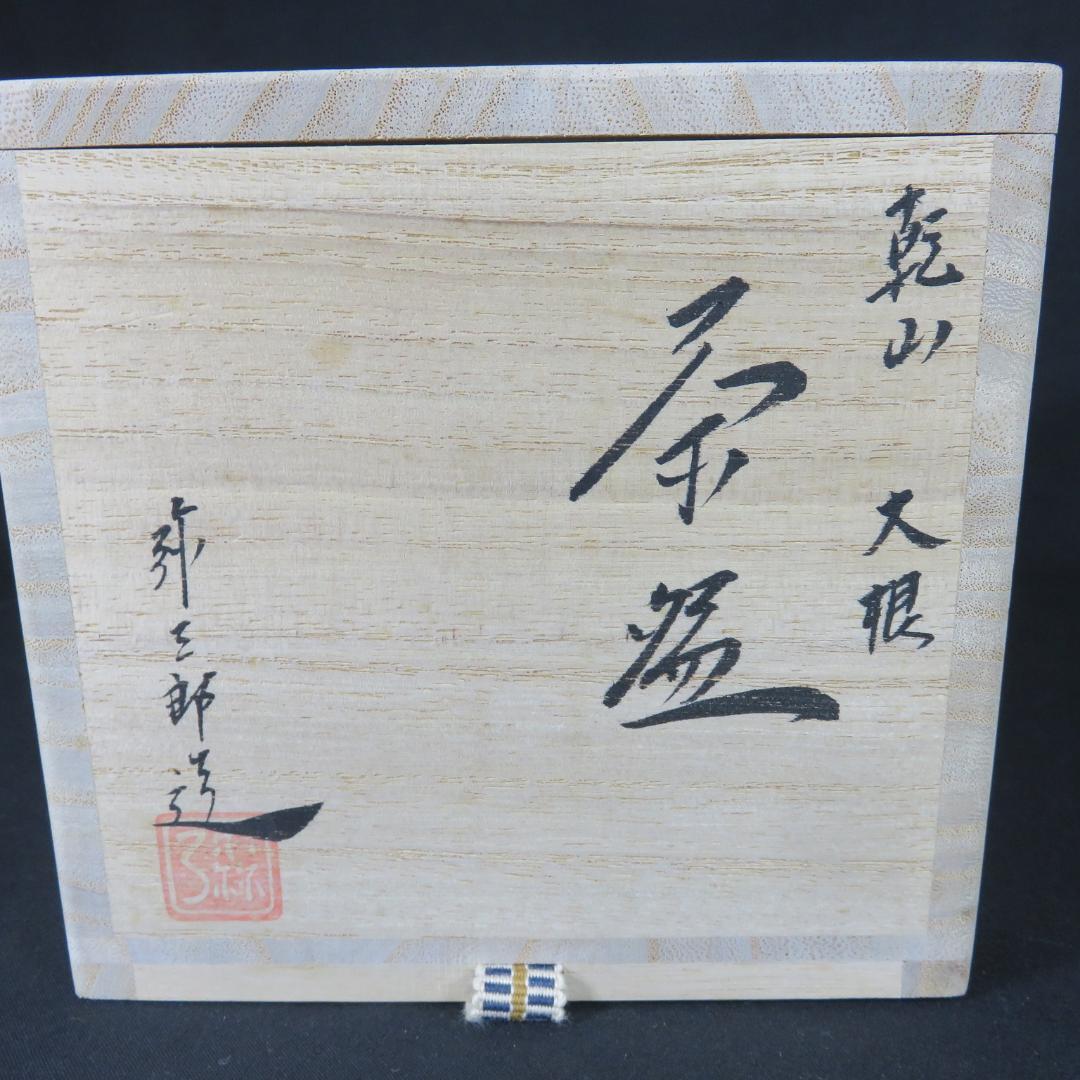 乾山 大根
茶盌
弥三郎造